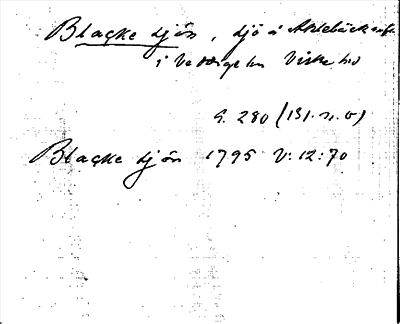 Blacke sjön, sjö i
i Vedbige sn Viske hd
G. 280 (151. n. o)
Blacke sjön 1795 V: 12:70